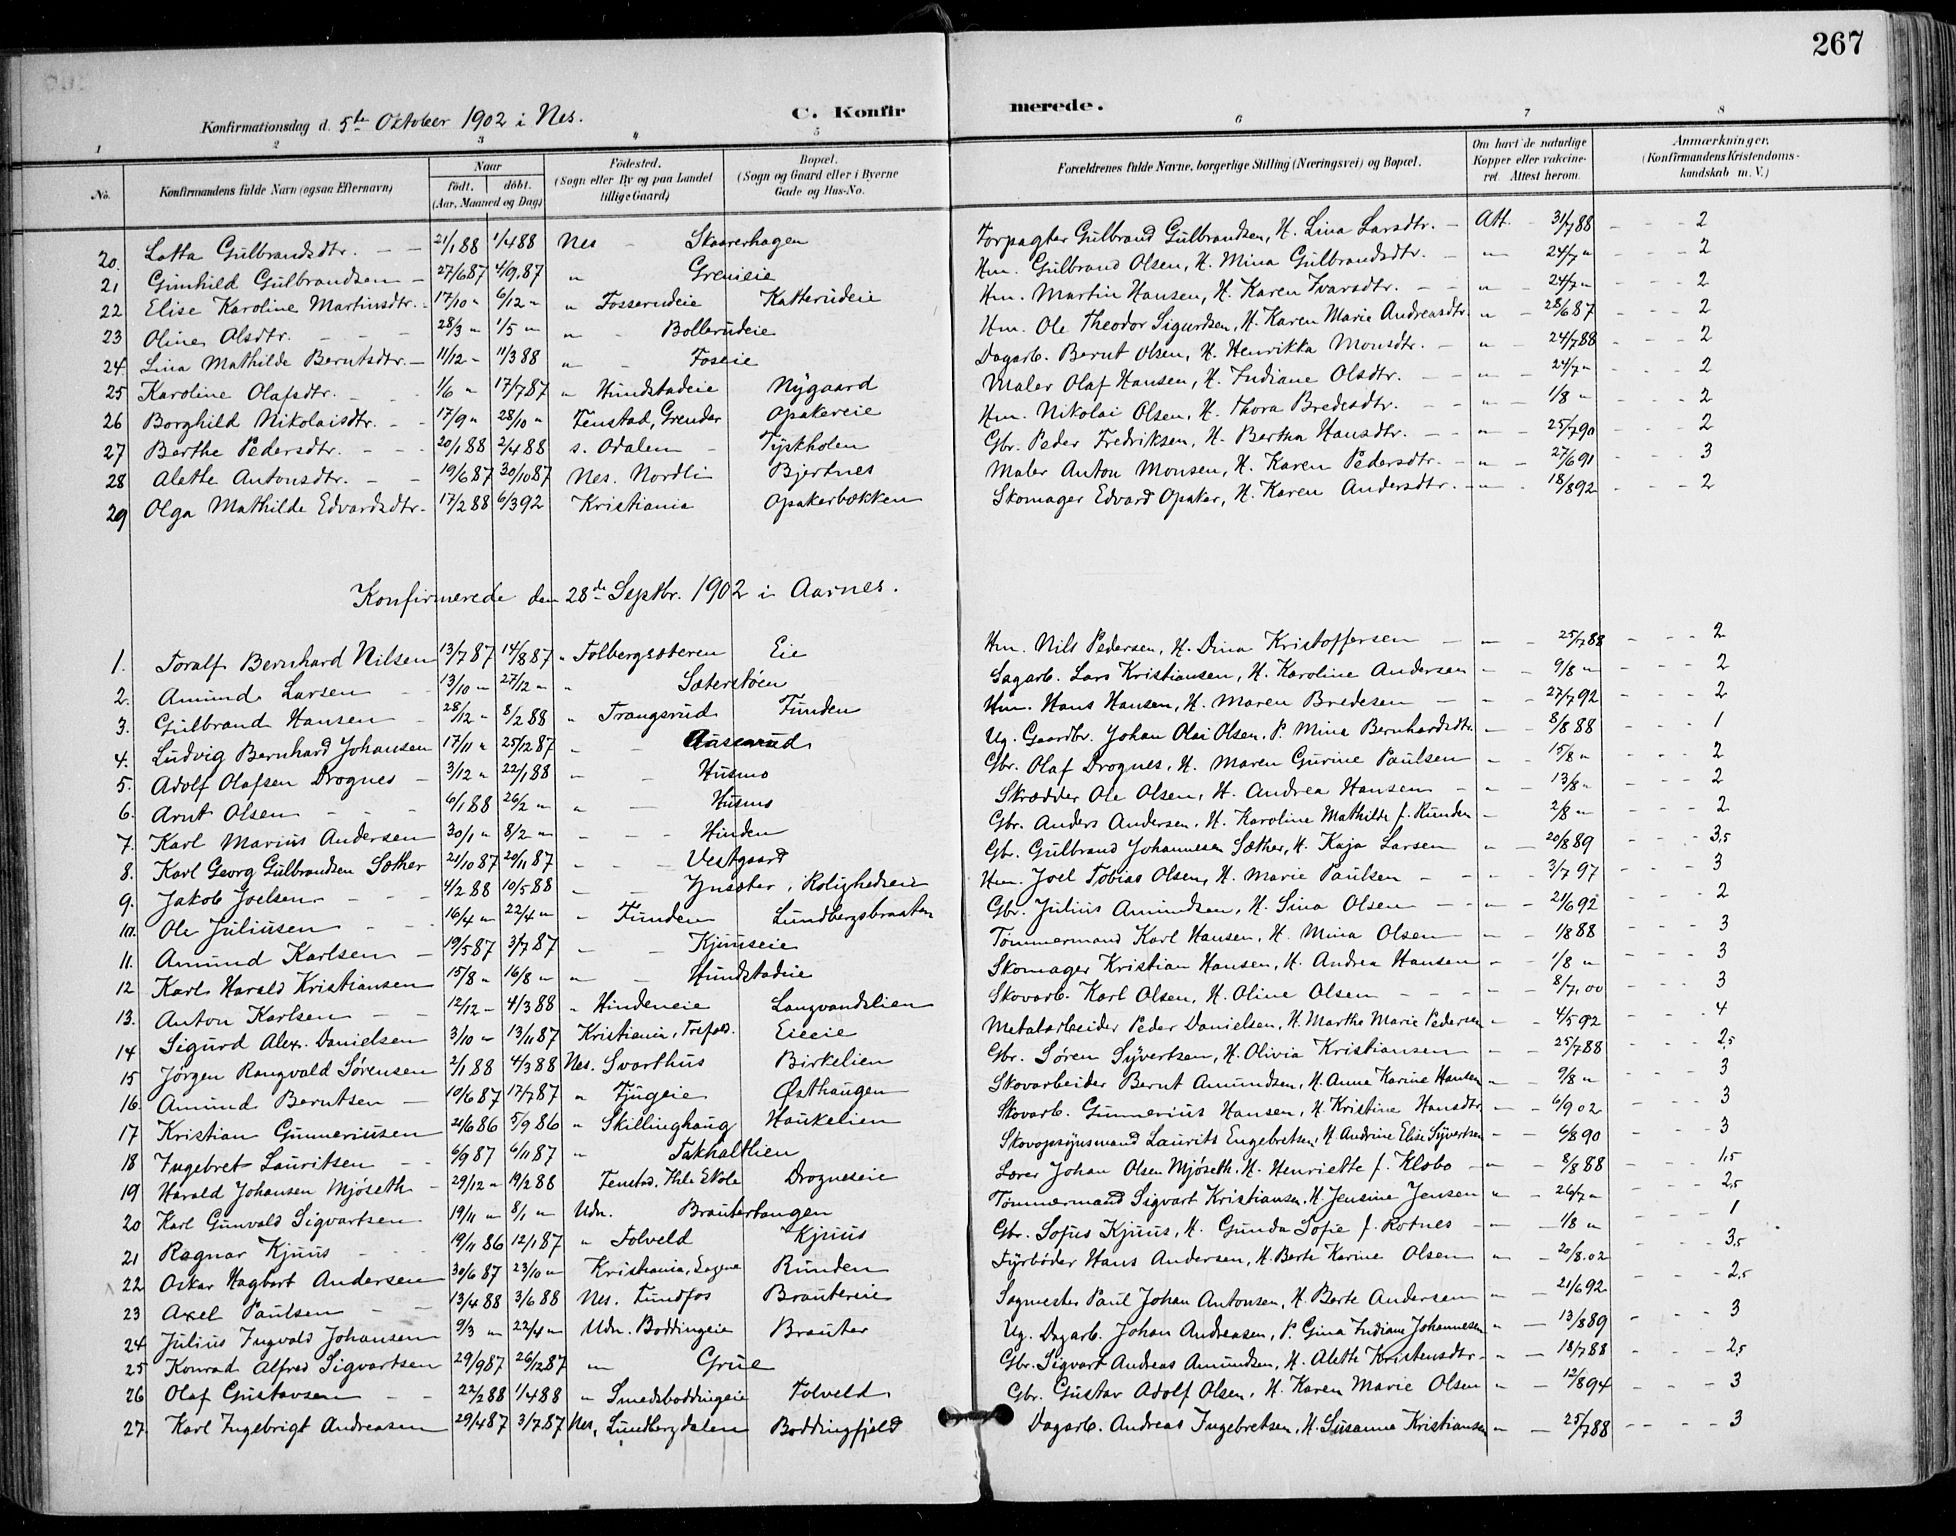 267
Konfirmationsdag d. 5te Oktober 1902 i Nes. C. Konfirmerede.
1 2 3 4 5 6 7 8
No. Konfirmandens fulde Navn (ogsaa Efternavn) Naar født. døbt. (Aar, Maaned og Dag) Fødested. (Sogn eller By og paa Landet tillige Gaard) Bopæl. (Sogn og Gaard eller i Byerne Gade og Hus-No. Forældrenes fulde Navne, borgerlige Stilling (Næringsvei) og Bopæl. Om havt de naturlige Kopper eller vakcineret. Attest herom. Anmærkninger. (Konfirmandens Kristendomskundskab m. V.)
20. Lotta Gulbrandsdtr. 21/1 88 1/4 88 Nes Skaarerhagen Forpagter Gulbrand Gulbrandsen, H. Lina Larsdtr. Att. 31/7 88 2
21 Gunhild Gulbrandsen 27/6 87 4/9 87 " Grenieie Hm. Gulbrand Olsen, H. Mina Gulbrandsdtr. " 24/7 " 2
22 Elise Karoline Martinsdtr. 17/10 " 6/12 " " Fosserudeie Katterudeie Hm. Martin Hansen, H. Karen Ivarsdtr. " 24/7 " 2
23 Oline Olsdtr. 28/3 " 1/5 " " Bollerudeie Hm. Ole Theodor Sigurdsen, H. Karen Marie Andreasdtr. " 28/6 87 2
24. Lina Mathilde Berntsdtr. 11/12 " 11/3 88 " Foseie Dagarb. Bernt Olsen, H. Henrikka Monsdtr. " 24/7 88 2
25 Karoline Olafsdtr. 1/6 " 17/7 87 " Hundstadeie Nygaard Maler Olaf Hansen, H. Indiane Olsdtr. " 24/7 " 2
26 Borghild Nikolaisdtr. 17/9 " 28/10 " Fenstad, Grender Opakereie Hm. Nikolai Olsen, H. Thora Bredesdtr. " 1/8 " 2
27 Berthe Pedersdtr. 20/1 88 2/4 88 s. Odalen Tyskholen Gbr. Peder Fredriksen, H. Bertha Hansdtr. " 25/7 90 2
28 Alette Antonsdtr. 19/6 87 30/10 87 Nes. Nordli Bjertnes Maler Anton Monsen, H. Karen Pedersdtr. " 27/6 91 3
29 Olga Mathilde Edvardsdtr. 17/2 88 6/3 92 Kristiania Opakerbækken Skomager Edvard Opaker, H. Karen Andersdtr. " 18/8 92 2
Konfirmerede den 28de Septbr. 1902 i Aarnes.
1. Toralf Bernhard Nilsen 13/7 87 14/8 87 " Tolbergsæteren Eie Hm. Nils Pedersen, H. Dina Kristoffersen " 25/7 88 2
2. Amund Larsen 13/10 " 27/12 " " Sæterstøen Sagarb. Lars Kristiansen, H. Karoline Andersen " 9/8 " 2
3. Gulbrand Hansen 28/12 " 8/2 88 " Trangsrud Funden Hm. Hans Hansen, H. Maren Bredesen " 27/7 92 2
4. Ludvig Bernhard Johansen 17/11 " 25/12 87 " Aaserud Ug. Gaardbr. Johan Olai Olsen, P. Mina Bernhardsdtr. " 8/8 88 1
5. Adolf Olafsen Drognes 3/12 " 22/1 88 " Husmo Gbr. Olaf Drognes, H. Maren Gurine Paulsen " 15/8 " 2
6. Arnt Olsen 6/1 88 26/2 " " Husmo Skrædder Ole Olsen, H. Andrea Hansen " 13/8 " 2
7. Karl Marius Andersen 30/1 " 8/2 " Hinden Gbr. Anders Andersen, H. Karoline Mathilde f. Runden 2/8 " 2
8. Karl Georg Gulbrandsen Sæther 21/10 87 20/11 87 Vestgaard Gbr. Gulbrand Johannesen Sæther, H. Kaja Larsen " 20/8 89 3,5
9. Jakob Joelsen 4/2 88 10/5 88 Ynsæter, Rolighedseie Hm. Joel Tobias Olsen, H. Marie Paulsen " 3/7 97 3
10. Ole Juliusen 16/4 " 22/4 " " Funden Lundbergsbraaten Gbr. Julius Amundsen, H. Sina Olsen " 21/6 92 2
11. Amund Karlsen 19/5 87 3/7 87 Kjuuseie Tømmermand Karl Hansen, H. Mina Olsen " 1/8 88 3
12 Karl Harald Kristiansen 15/8 " 16/8 " " Hundstadeie Skomager Kristian Hansen, H. Andrea Hansen " 1/8 " 3
13. Anton Karlsen 12/12 " 4/3 88 " Hindeneie Langvandslien Skovarb. Karl Olsen, H. Oline Olsen " 8/7.00 3
14 Sigurd Alex. Danielsen 3/10 " 13/11 87 Kristiania, Trefold. Eieeie Metalarbeider Peder Danielsen, H. Marthe Marie Pedersen " 4/5 92 4
15 Jørgen Rangvald Sørensen 2/1 88 4/3 88 Nes. Svarthus Birkelien Gbr. Søren Syvertsen, H. Olivia Kristiansen " 25/7 88 2,5
16. Amund Berntsen 19/6 87 17/7 87 " Fjugeie Østhaugen Skovarbeider Bernt Amundsen, H. Anne Karine Hansen " 9/8 " 3
17 Kristian Gunneriusen 21/6 86 5/9 86 " Skillinghaug Haukelien Skovarb. Gunnerius Hansen, H. Kristine Hansdtr. " 6/9 02 3
18 Ingebret Lauritsen 6/9 87 6/11 87 " Takhaltlien Skovopsynsmand Laurits Engebretsen, H. Andrine Elise Syvertsen " 6/8 90 3
19 Harald Johansen Mjøseth 29/12 " 19/2 88 Fenstad. Ihle Skole Drogneseie Lærer Johan Olsen Mjøseth, H. Henriette f. Klobo " 8/8 88 1,5
20 Karl Gunvald Sigvartsen 19/11 " 8/1 " Udn. Brautertangen Tømmermand Sigvart Kristiansen, H. Jensine Jensen " 26/7 " 2,5
21 Ragnar Kjuus 19/11 86 12/1 87 " Tolveld Kjuus Gbr. Sofus Kjuus, H. Gunda Sofie f. Rotnes " 1/8 " 1
22 Oskar Hagbart Andersen 30/6 87 23/10 " Kristiania, Sagene Runden Fyrbøder Hans Andersen, H. Berte Karine Olsen " 20/8.02 3,5
23 Axel Paulsen 13/4 88 3/6 88 Nes. Fundfos Brautereie Sagmester Paul Johan Antonsen, H. Berte Andersen " 21/6 92 2,5
24 Julius Ingvald Johansen 9/3 " 22/4 " Udn. Boddingeie Brauter Ug. Dagarb. Johan Andreasen, P. Gina Indiane Johannesen " 13/8 89 3
25 Konrad Alfred Sigvartsen 29/9 87 26/12 87 " Grue Gbr. Sigvart Andreas Amundsen, H. Alette Kristensdtr. " 18/7 88 2,5
26 Olaf Gustavsen 22/2 88 1/4 88 " Smedsboddingeie Tolveld Gbr. Gustav Adolf Olsen, H. Karen Marie Olsen " 12/8 94 3
27. Karl Ingebrigt Andreasen 29/4 87 3/7 87 Nes, Lundbergdalen Boddingfjeld Dagarb. Andreas Ingebretsen, H. Susanne Kristiansen " 25/7 88 3